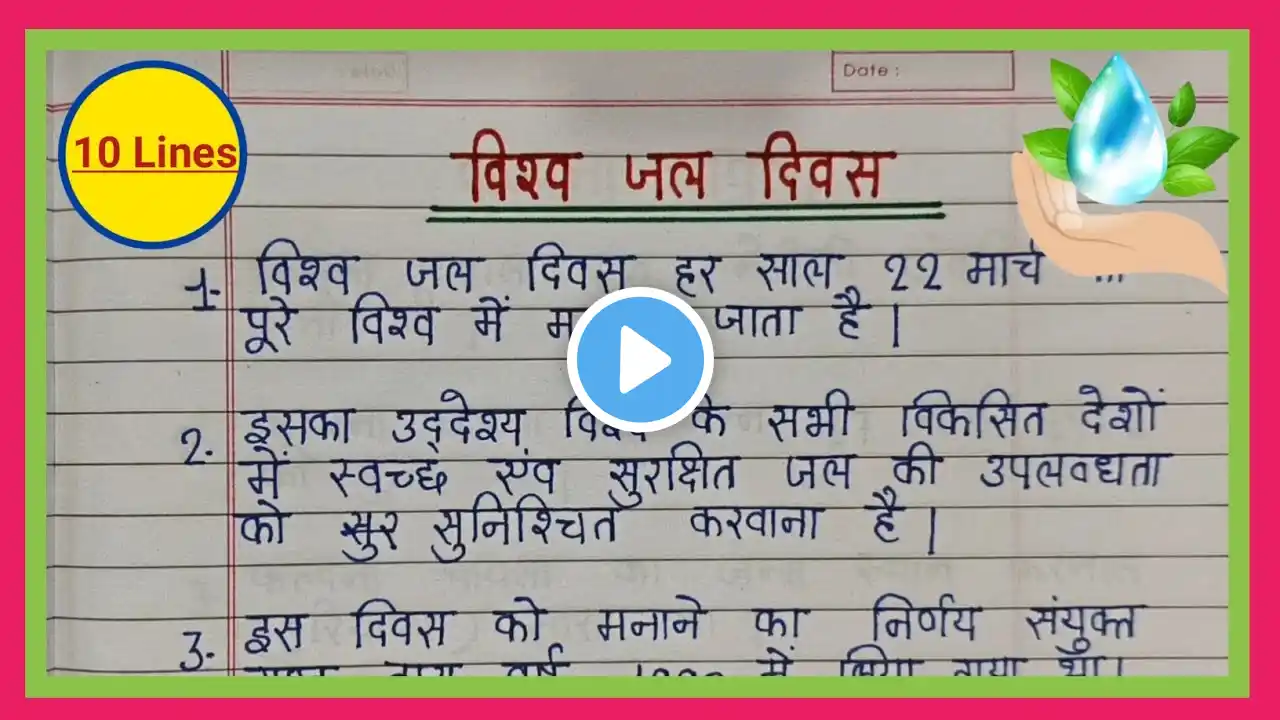 Date :
10 Lines
विश्व जल दिवस
1. विश्व जल दिवस हर साल 22 मार्च
पूरे विश्व में जाता है।
2. इसका उद्देश्य विश्व के सभी विकसित देशों
में स्वच्छ एंव सुरक्षित जल की उपलवधता
को सुर सुनिश्चित करवाना है।
3. इस दिवस को मनाने का निर्णय संयुक्त
में लिया गया था।